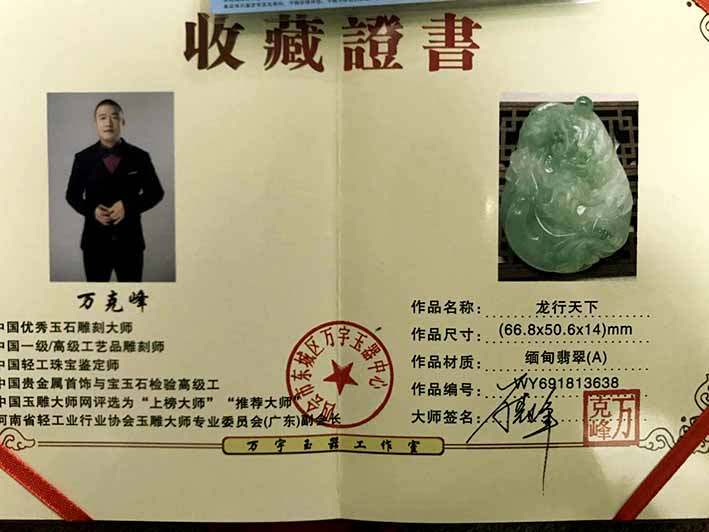 收藏證書
万克峰
中国优秀玉石雕刻大师
中国一级/高级工艺品雕刻师
中国轻工珠宝鉴定师
中国贵金属首饰与宝玉石检验高级工
中国玉雕大师网评选为“上榜大师”“推荐大师”
河南省轻工业行业协会玉雕大师专业委员会(广东)副会长
会市东城区万宇玉器中心
作品名称: 龙行天下
作品尺寸: (66.8x50.6x14)mm
作品材质: 缅甸翡翠(A)
作品编号: WY691813638
大师签名: 万克峰
万克峰
万宇玉器工作室